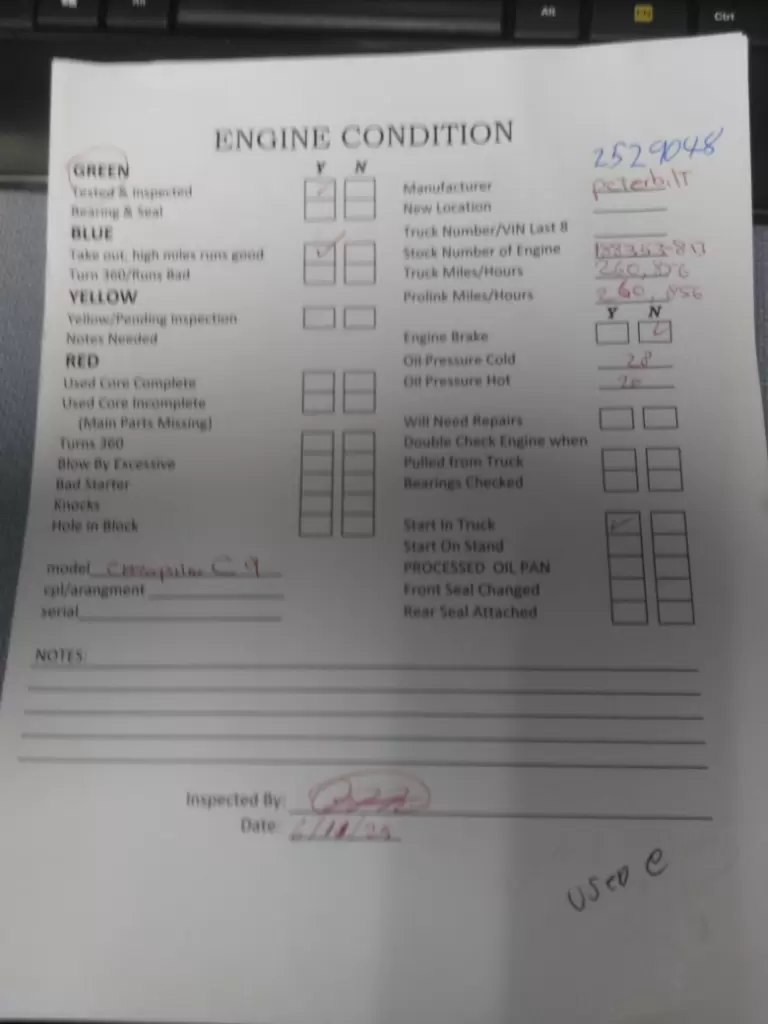 Alt
Ctrl
ENGINE CONDITION
2529048
GREEN Y N
Tested & Inspected
Bearing & Seal
BLUE
Take out, high miles runs good
Turn 360/Runs Bad
YELLOW
Yellow/Pending Inspection
Notes Needed
RED
Used Core Complete
Used Core Incomplete
(Main Parts Missing)
Turns 360
Blow By Excessive
Bad Starter
Knocks
Hole in Block
model C9
cpl/arangment
serial
Manufacturer peterbilt
New Location
Truck Number/VIN Last 8
Stock Number of Engine
Truck Miles/Hours
Prolink Miles/Hours 260,856
Y N
Engine Brake
Oil Pressure Cold 28
Oil Pressure Hot 20
Will Need Repairs
Double Check Engine when
Pulled from Truck
Bearings Checked
Start In Truck
Start On Stand
PROCESSED OIL PAN
Front Seal Changed
Rear Seal Attached
NOTES:
Inspected By:
Date:
USED e